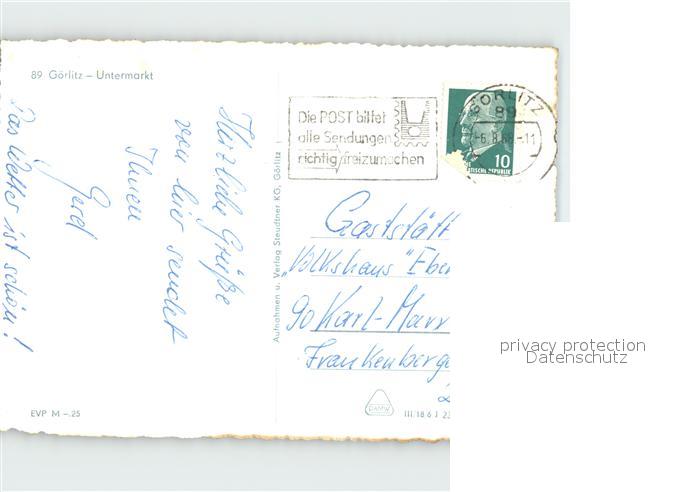 89 Görlitz – Untermarkt
Herzliche Grüße
von hier sendet
Ihnen
Gerd
Das Wetter ist schön!
EVP M –.25
Aufnahmen u. Verlag Steudtner KG, Görlitz
Die POST bittet
alle Sendungen
richtig freizumachen
GÖRLITZ
89
-6.8.68.-11
10
DEUTSCHE REPUBLIK
Gaststätt
„Volkshaus" Eber
90 Karl-Marx
Frankenberge
DAMW
III/18 6 J 23
privacy protection
Datenschutz